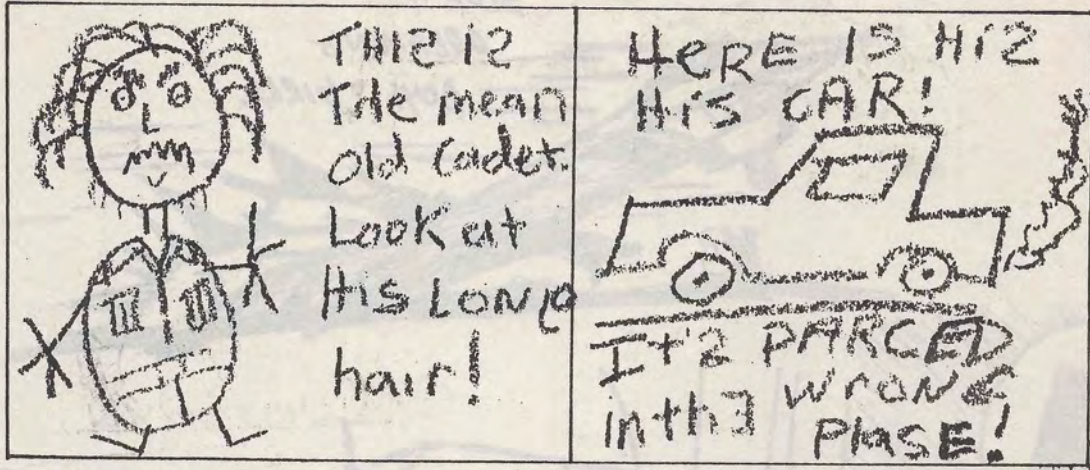 THIZ iZ
THe mean
old Cadet.
Look at
His LONG
hair!
HeRE IS HiZ
HiS CAR!
It'z PARCED
in thƎ WRONG
PlasE!